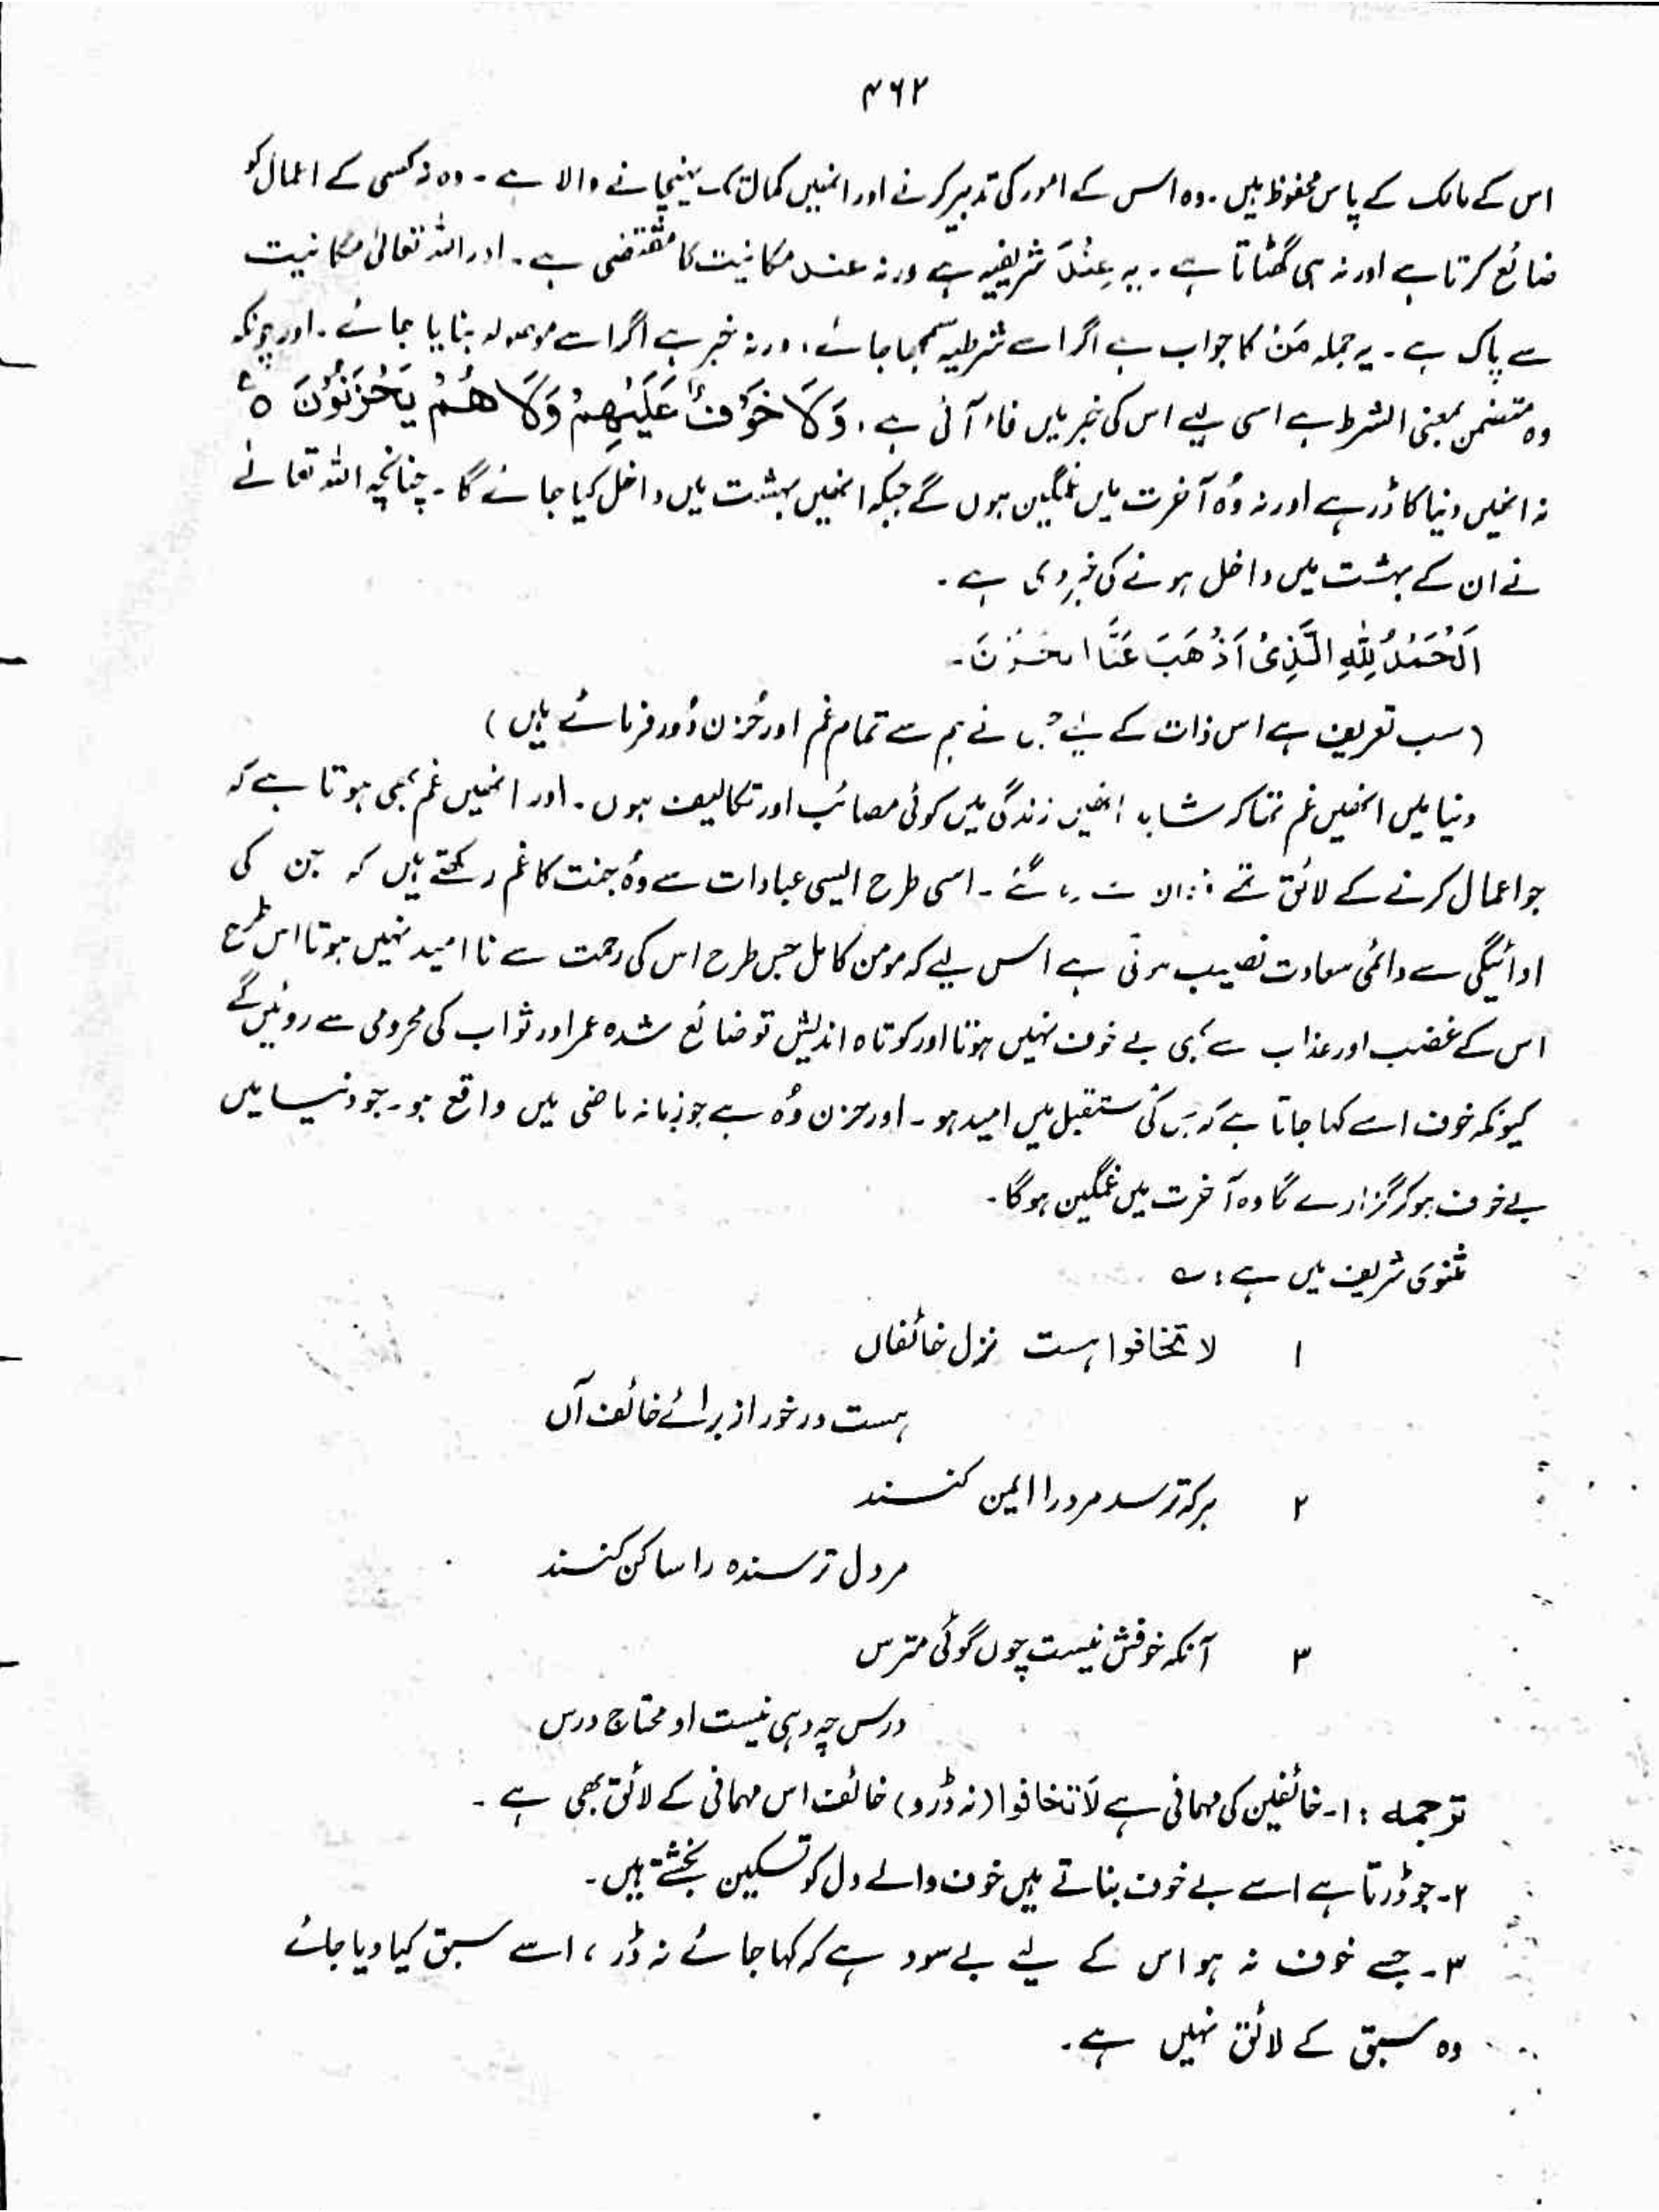 ۴۶۲
اس کے مالک کے پاس محفوظ ہیں ۔ وہ اس کے امور کی تدبیر کرنے اور انہیں کمال تک پہنچانے والا ہے ۔ وہ نہ کسی کے اعمال کو
ضائع کرتا ہے اور نہ ہی گھٹاتا ہے ۔ یہ عِنْدَ شریفیہ ہے ورنہ عند مکانیت کا مقتضی ہے ۔ اور اللہ تعالیٰ مکانیت
سے پاک ہے ۔ یہ جملہ مَنْ کا جواب ہے اگر اسے شرطیہ سمجھا جائے، ورنہ خبر ہے اگر اسے موصولہ بنایا جائے ۔ اور چونکہ
وہ متضمن بمعنی الشرط ہے اسی لیے اس کی خبر میں فاء آئی ہے، وَلَا خَوْفٌ عَلَيْهِمْ وَلَا هُمْ يَحْزَنُوْنَ ○
نہ انھیں دنیا کا ڈر ہے اور نہ وُہ آخرت میں غمگین ہوں گے جبکہ انھیں بہشت میں داخل کیا جائے گا ۔ چنانچہ اللہ تعالےٰ
نے ان کے بہشت میں داخل ہونے کی خبر دی ہے ۔
اَلْحَمْدُ لِلّٰهِ الَّذِىْ اَذْهَبَ عَنَّا الحَزَنَ ۔
(سب تعریف ہے اس ذات کے لیے جس نے ہم سے تمام غم اور حُزن دُور فرمائے ہیں )
دنیا میں انھیں غم تھا کہ شاید انھیں زندگی میں کوئی مصائب اور تکالیف ہوں ۔ اور انھیں غم بھی ہوتا ہے کہ
جو اعمال کرنے کے لائق تھے گئے ۔ اسی طرح ایسی عبادات سے وُہ جنت کا غم رکھتے ہیں کہ جن کی
ادائیگی سے دائمی سعادت نصیب ہوتی ہے اس لیے کہ مومن کامل جس طرح اس کی رحمت سے نا امید نہیں ہوتا اس طرح
اس کے غضب اور عذاب سے بھی بے خوف نہیں ہوتا اور کوتاہ اندیش تو ضائع شدہ عمر اور ثواب کی محرومی سے روئیں گے
کیونکہ خوف اسے کہا جاتا ہے کہ جس کی مستقبل میں امید ہو ۔ اور حزن وُہ ہے جو زمانہ ماضی میں واقع ہو ۔ جو دنیا میں
بے خوف ہو کر گزارے گا وہ آخرت میں غمگین ہو گا ۔
مثنوی شریف میں ہے : ؎
۱ لا تخافوا ہست نزل خائفاں
ہست درخور از برائے خائف آں
۲ ہر کہ ترسد مرورا ایمن کنند
مر دل ترسندہ را ساکن کنند
۳ آنکہ خوفش نیست چوں گوئی مترس
درس چہ دہی نیست او محتاج درس
ترجمہ : ۱۔ خائفین کی مہمانی ہے لَا تخافوا (نہ ڈرو) خائف اس مہمانی کے لائق بھی ہے ۔
۲۔ جو ڈرتا ہے اسے بے خوف بناتے ہیں خوف والے دل کو تسکین بخشتے ہیں ۔
۳۔ جسے خوف نہ ہو اس کے لیے بے سود ہے کہ کہا جائے نہ ڈر، اسے سبق کیا دیا جائے
وہ سبق کے لائق نہیں ہے ۔